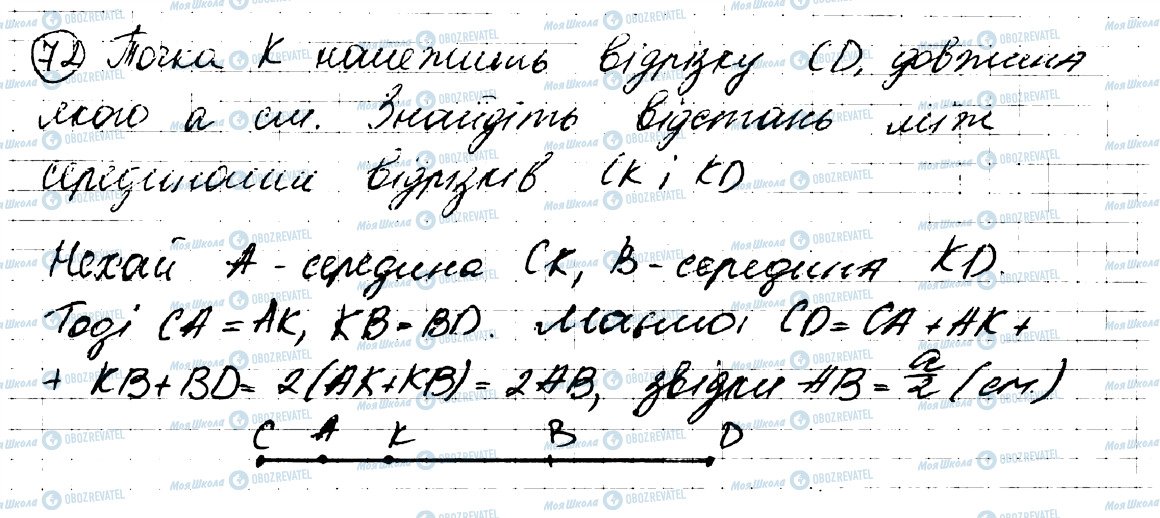 72 Точка K належить відрізку CD, довжина
якого a см. Знайдіть відстань між
серединами відрізків CK і KD
Нехай A - середина CK, B - середина KD.
Тоді CA = AK, KB = BD. Маємо: CD = CA + AK +
+ KB + BD = 2(AK + KB) = 2AB, звідки AB = a/2 (см.)
C A K B D